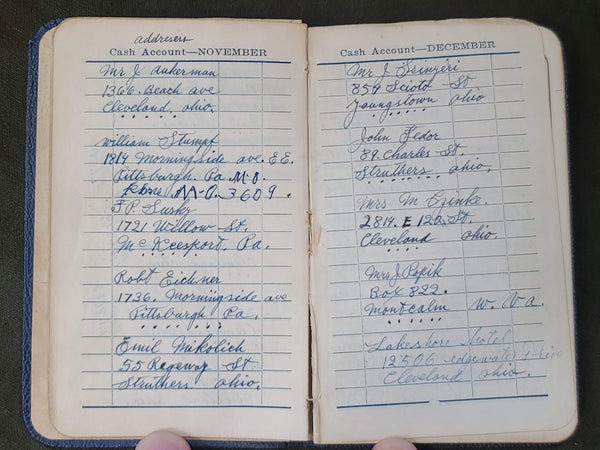 addresses
Cash Account—NOVEMBER
Mr J Ankerman
1366. Beach ave
Cleveland, ohio.
William Stumpf
1819 Morningside ave. E.E.
Pittsburgh Pa M-O.
M-O. 3609.
F.P. Susky
1721 Willow St.
McKeesport, Pa.
Robt Eichner
1736. Morningside ave
Pittsburgh Pa.
Emil Mikolich
55 St
Struthers ohio.
Cash Account—DECEMBER
Mr J
859 Scioto St
Youngstown ohio
John Fedor
89. Charles St.
Struthers, ohio.
Mrs M
2814. E 120. St.
Cleveland ohio.
Mrs J Popik
Box 822.
Montcalm W. Va.
Lakeshore hotel
12506 edgewater drive
Cleveland ohio.